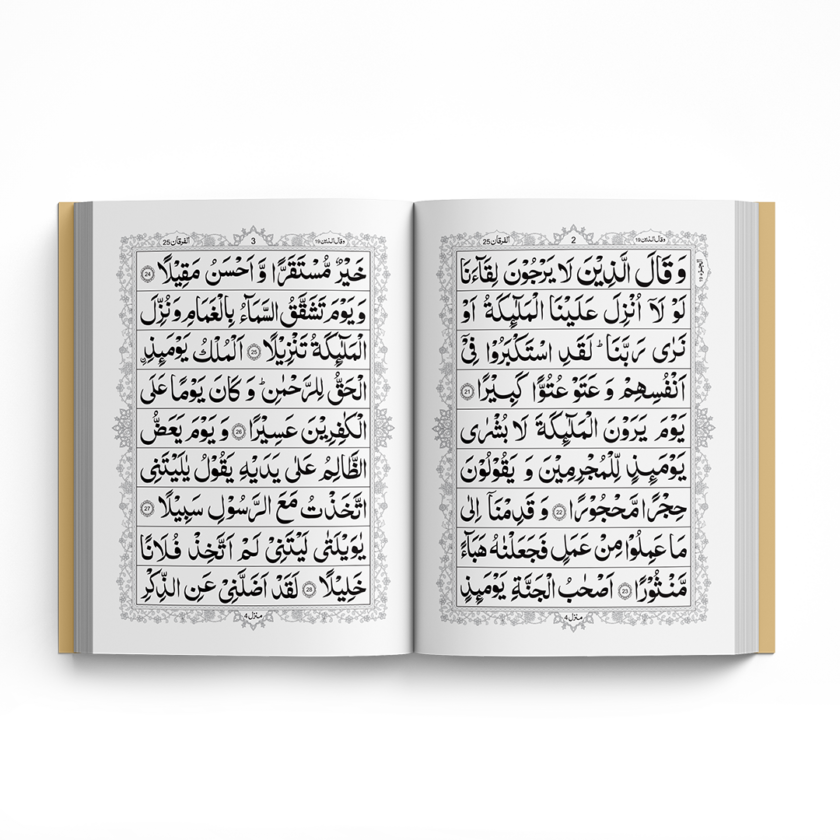 وقال الذين ١٩
2
الفرقان 25
وَ قَالَ الَّذِيْنَ لَا يَرْجُوْنَ لِقَآءَنَا
لَوْ لَاۤ اُنْزِلَ عَلَيْنَا الْمَلٰٓئِكَةُ اَوْ
نَرٰى رَبَّنَا ؕ لَقَدِ اسْتَكْبَرُوْا فِيْۤ
اَنْفُسِهِمْ وَ عَتَوْ عُتُوًّا كَبِيْرًا 21
يَوْمَ يَرَوْنَ الْمَلٰٓئِكَةَ لَا بُشْرٰى
يَوْمَىِٕذٍ لِّلْمُجْرِمِيْنَ وَ يَقُوْلُوْنَ
حِجْرًا مَّحْجُوْرًا 22 وَ قَدِمْنَاۤ اِلٰى
مَا عَمِلُوْا مِنْ عَمَلٍ فَجَعَلْنٰهُ هَبَآءً
مَّنْثُوْرًا 23 اَصْحٰبُ الْجَنَّةِ يَوْمَىِٕذٍ
منزل 4
وقال الذين ١٩
3
الفرقان 25
خَيْرٌ مُّسْتَقَرًّا وَّ اَحْسَنُ مَقِيْلًا 24
وَ يَوْمَ تَشَقَّقُ السَّمَآءُ بِالْغَمَامِ وَ نُزِّلَ
الْمَلٰٓئِكَةُ تَنْزِيْلًا 25 اَلْمُلْكُ يَوْمَىِٕذِ
الْحَقُّ لِلرَّحْمٰنِ ؕ وَ كَانَ يَوْمًا عَلَى
الْكٰفِرِيْنَ عَسِيْرًا 26 وَ يَوْمَ يَعَضُّ
الظَّالِمُ عَلٰى يَدَيْهِ يَقُوْلُ يٰلَيْتَنِي
اتَّخَذْتُ مَعَ الرَّسُوْلِ سَبِيْلًا 27
يٰوَيْلَتٰى لَيْتَنِيْ لَمْ اَتَّخِذْ فُلَانًا
خَلِيْلًا 28 لَقَدْ اَضَلَّنِيْ عَنِ الذِّكْرِ
منزل 4